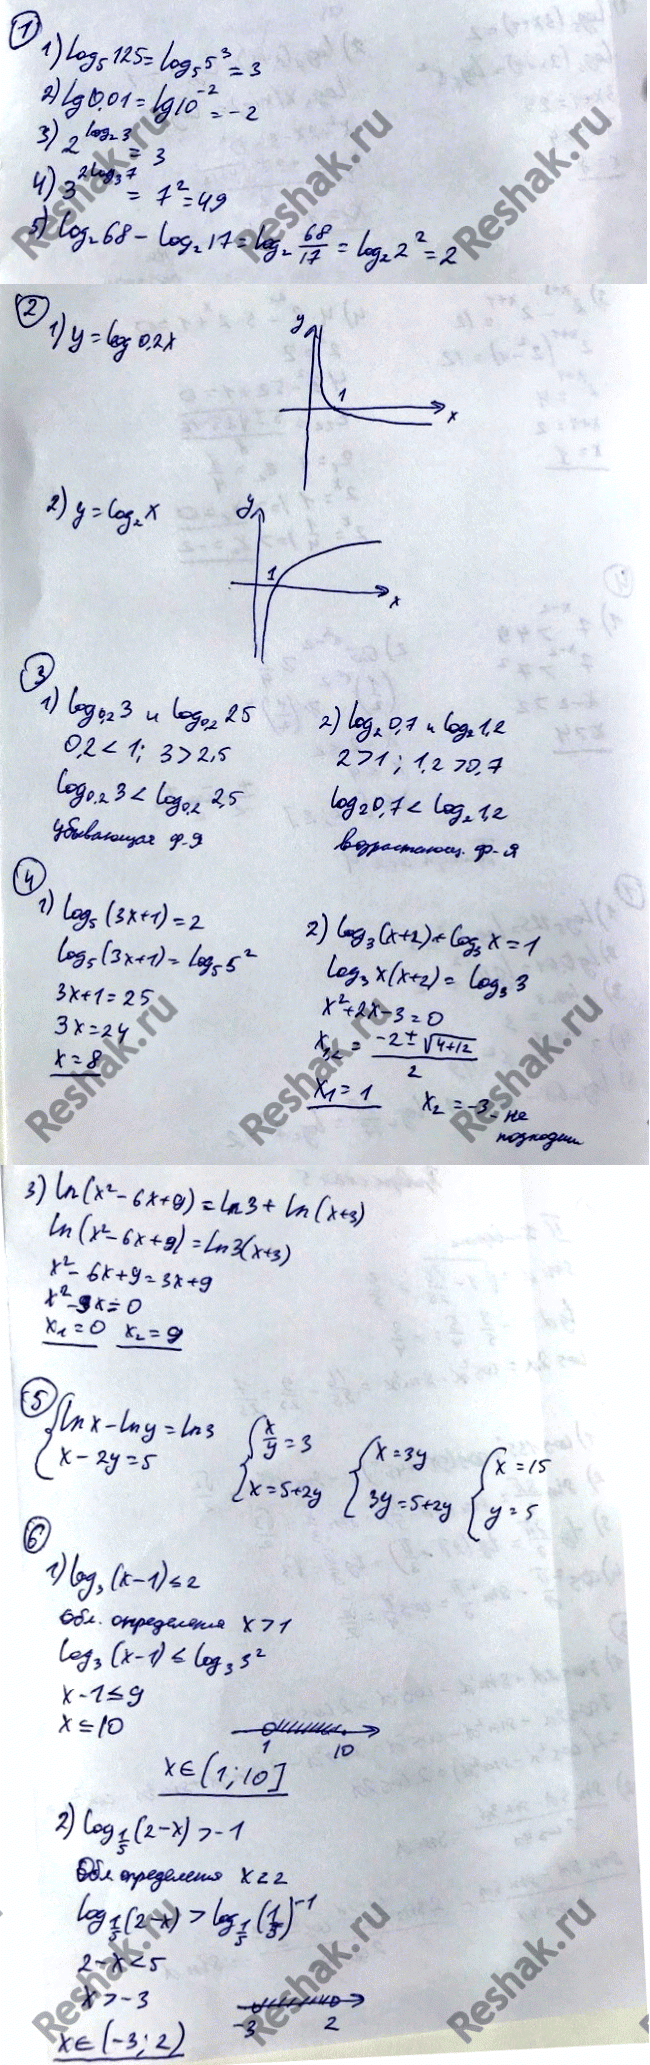 1
1) log₅125 = log₅5³ = 3
2) lg0,01 = lg10⁻² = -2
3) 2^(log₂3) = 3
4) 3^(2log₃7) = 7² = 49
5) log₂68 - log₂17 = log₂ 68/17 = log₂2² = 2
2
1) y = log 0,2x
y
1
x
2) y = log₂x
y
1
x
3
1) log₀,₂3 и log₀,₂ 25
0,2 < 1; 3 > 2,5
log₀,₂3 < log₀,₂ 2,5
убывающая ф-я
2) log₂0,7 и log₂1,2
2 > 1; 1,2 > 0,7
log₂0,7 < log₂1,2
возрастающ. ф-я
4
1) log₅(3x+1) = 2
log₅(3x+1) = log₅5²
3x+1 = 25
3x = 24
x = 8
2) log₃(x+2) + log₃x = 1
log₃x(x+2) = log₃3
x² + 2x - 3 = 0
x₁,₂ = (-2 ± √(4+12))/2
x₁ = 1 x₂ = -3 - не
подходит
3) ln(x² - 6x + 9) = ln3 + ln(x+3)
ln(x² - 6x + 9) = ln3(x+3)
x² - 6x + 9 = 3x + 9
x² - 9x = 0
x₁ = 0 x₂ = 9
5
{ lnx - lny = ln3
x - 2y = 5
{ x/y = 3
x = 5+2y
{ x = 3y
3y = 5+2y
{ x = 15
y = 5
6
1) log₃(x-1) ≤ 2
Обл. определения x > 1
log₃(x-1) ≤ log₃3²
x - 1 ≤ 9
x ≤ 10
1 10
x ∈ (1; 10]
2) log₁/₅(2-x) > -1
Обл определения x < 2
log₁/₅(2-x) > log₁/₅(1/5)⁻¹
2 - x < 5
x > -3
-3 2
x ∈ (-3; 2)
Reshak.ru
Reshak.ru
Reshak.ru
Reshak.ru
Reshak.ru
Reshak.ru
Reshak.ru
Reshak.ru